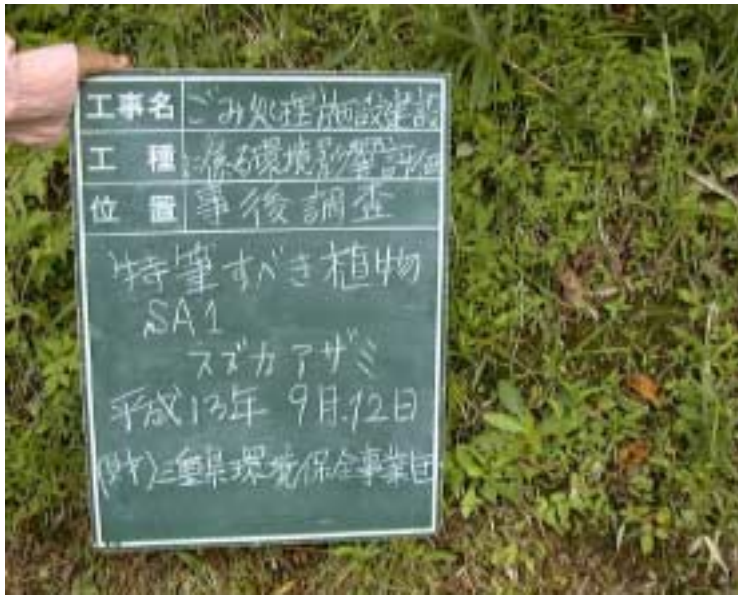 工事名 ごみ処理施設建設
工種 に係る環境影響評価
位置 事後調査
特筆すべき植物
SA1
スズカアザミ
平成13年 9月12日
(財)三重県環境保全事業団